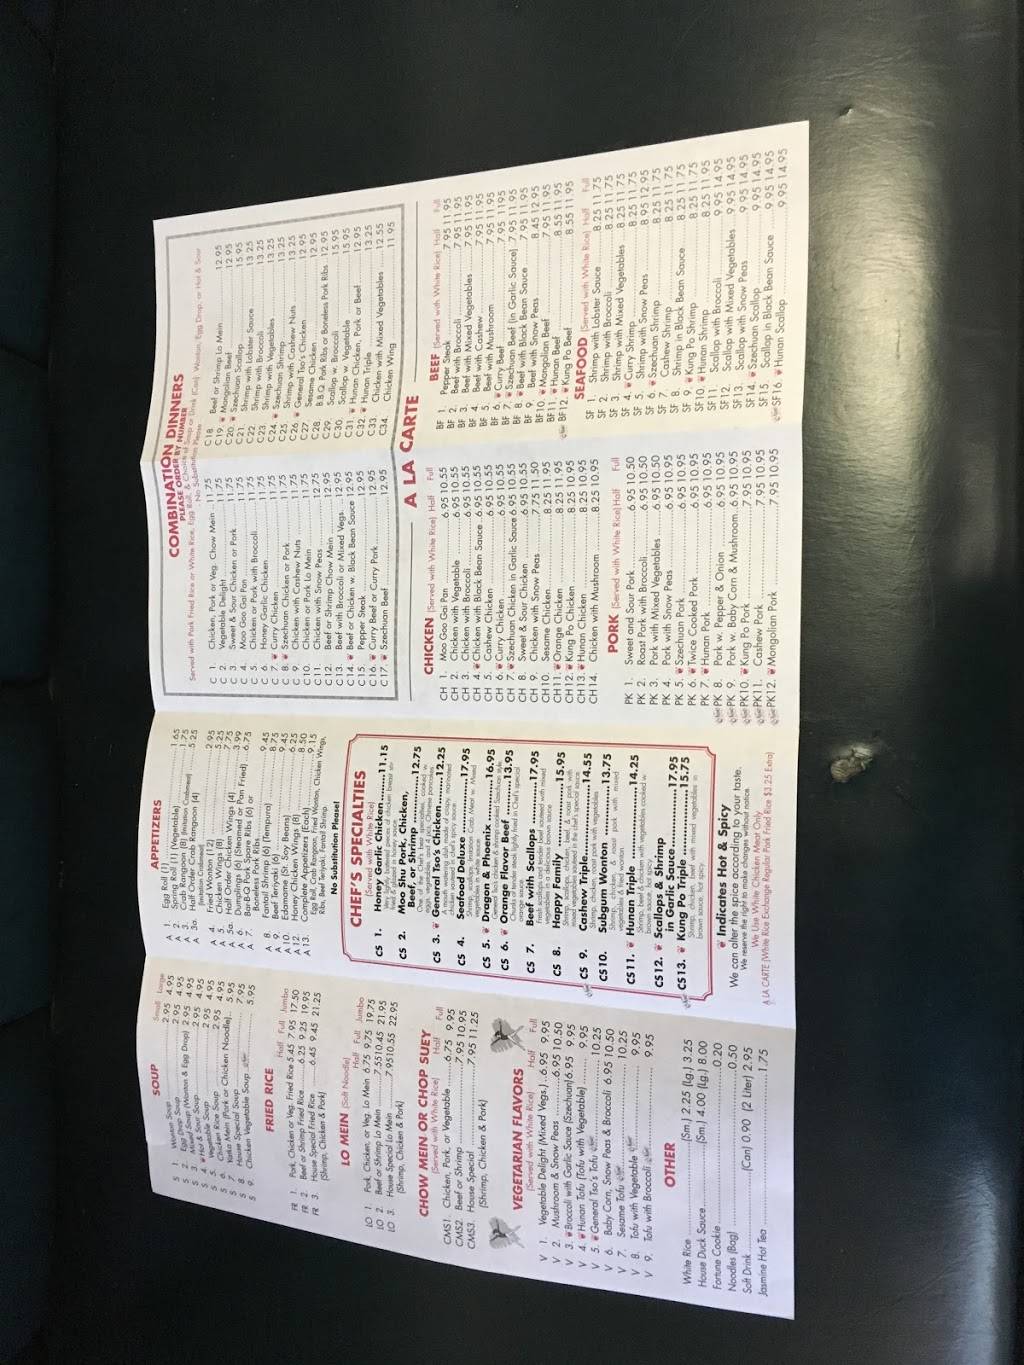 SOUP
Small Large
S 1. Wonton Soup 2.95 4.95
S 2. Egg Drop Soup 2.95 4.95
S 3. Mixed Soup (Wonton & Egg Drop) 2.95 4.95
S 4. Hot & Sour Soup 2.95 4.95
S 5. Vegetable Soup 2.95 4.95
S 6. Chicken Rice Soup 2.95 4.95
S 7. Yatka Mein (Pork or Chicken Noodle) 5.95
S 8. House Special Soup 7.95
S 9. Chicken Vegetable Soup 5.95
FRIED RICE
Half Full Jumbo
FR 1. Pork, Chicken or Veg. Fried Rice 5.45 7.95 17.50
FR 2. Beef or Shrimp Fried Rice 6.25 9.25 19.95
FR 3. House Special Fried Rice 6.45 9.45 21.25
(Shrimp, Chicken & Pork)
LO MEIN (Soft Noodle)
Half Full Jumbo
LO 1. Pork, Chicken, or Veg. Lo Mein 6.75 9.75 19.75
LO 2. Beef or Shrimp Lo Mein 7.55 10.45 21.95
LO 3. House Special Lo Mein 7.95 10.55 22.95
(Shrimp, Chicken & Pork)
CHOW MEIN OR CHOP SUEY
(Served with White Rice) Half Full
CMS1. Chicken, Pork, or Vegetable 6.75 9.95
CMS2. Beef or Shrimp 7.95 10.95
CMS3. House Special 7.95 11.25
(Shrimp, Chicken & Pork)
VEGETARIAN FLAVORS
(Served with White Rice) Half Full
V 1. Vegetable Delight (Mixed Vegs.) 6.95 9.95
V 2. Mushroom & Snow Peas 6.95 10.50
V 3. Broccoli with Garlic Sauce (Szechuan) 6.95 9.95
V 4. Hunan Tofu (Tofu with Vegetable) 9.95
V 5. General Tso's Tofu 10.25
V 6. Baby Corn, Snow Peas & Broccoli 6.95 10.50
V 7. Sesame Tofu 10.25
V 8. Tofu with Vegetable 9.95
V 9. Tofu with Broccoli 9.95
OTHER
White Rice (Sm.) 2.25 (Lg.) 3.25
House Duck Sauce (Sm.) 4.00 (Lg.) 8.00
Fortune Cookie 0.20
Noodles (Bag) 0.50
Soft Drink (Can) 0.90 (2 Liter) 2.95
Jasmine Hot Tea 1.75
APPETIZERS
A 1. Egg Roll (1) 1.65
A 2. Spring Roll (1) (Vegetable) 1.75
A 3. Crab Rangoon (8) (Imitation Crabmeat) 5.25
A 3a. Half Order Crab Rangoon (4)
(Imitation Crabmeat) 2.95
A 4. Fried Wonton (12) 5.25
A 5. Chicken Wings (8) 7.75
A 5a. Half Order Chicken Wings (4)
A 6. Dumplings (6) (Steamed or Pan Fried) 6.75
A 7. Bar-B-Q Pork Spare Ribs (6) or
Boneless Pork Ribs 9.45
A 8. Fantail Shrimp (6) (Tempura) 8.75
A 9. Beef Teriyaki (6) 9.45
A 10. Edamame (St. Soy Beans) 6.25
A 12. Honey Chicken Wings (8) 8.50
A 13. Complete Appetizers (Each) 9.15
Egg Roll, Crab Rangoon, Fried Wonton, Chicken Wings,
Ribs, Beef Teriyaki, Fantail Shrimp.
No Substitution Please!
CHEF'S SPECIALTIES
(Served with White Rice)
CS 1. Honey Garlic Chicken 11.15
CS 2. Moo Shu Pork, Chicken,
Beef, or Shrimp 12.75
CS 3. General Tso's Chicken 12.25
CS 4. Seafood Deluxe 17.95
CS 5. Dragon & Phoenix 16.95
CS 6. Orange Flavor Beef 13.95
CS 7. Beef with Scallops 17.95
CS 8. Happy Family 15.95
CS 9. Cashew Triple 14.55
CS10. Subgum Wonton 13.75
CS11. Hunan Triple 14.25
CS12. Scallops & Shrimp
in Garlic Sauce 17.95
CS13. Kung Po Triple 15.75
Indicates Hot & Spicy
We can alter the spice according to your taste.
We reserve the right to make changes without notice.
We Use White Chicken Meat Only
A LA CARTE (White Rice Exchange Regular Pork Fried Rice $3.25 Extra)
COMBINATION DINNERS
PLEASE ORDER BY NUMBER
Served with Pork Fried Rice or White Rice, Egg Roll, & Choice of Soup or Drink (Can): Wonton, Egg Drop, or Hot & Sour
No Substitution Please
C 1. Chicken, Pork or Veg. Chow Mein 11.75
C 2. Vegetable Delight 11.75
C 3. Sweet & Sour Chicken or Pork 11.75
C 4. Moo Goo Gai Pan 11.75
C 5. Chicken or Pork with Broccoli 11.75
C 6. Honey Garlic Chicken 11.75
C 7. Curry Chicken 11.75
C 8. Szechuan Chicken or Pork 11.75
C 9. Chicken with Cashew Nuts 11.75
C 10. Chicken or Pork Lo Mein 11.75
C 11. Chicken with Snow Peas 12.75
C 12. Beef or Shrimp Chow Mein 12.95
C 13. Beef with Broccoli or Mixed Vegs. 12.95
C 14. Beef or Chicken w. Black Bean Sauce 12.95
C 15. Pepper Steak 12.95
C 16. Curry Beef or Curry Pork 12.95
C 17. Szechuan Beef 12.95
C18. Beef or Shrimp Lo Mein 12.95
C19. Mongolian Beef 12.95
C20. Szechuan Scallop 15.95
C21. Shrimp with Lobster Sauce 13.25
C22. Shrimp with Broccoli 13.25
C23. Shrimp with Vegetables 13.25
C24. Szechuan Shrimp 13.25
C25. Shrimp with Cashew Nuts 13.25
C26. General Tso's Chicken 12.95
C27. Sesame Chicken 12.95
C28. B.B.Q. Pork Ribs or Boneless Pork Ribs 12.95
C29. Scallop w. Broccoli 15.95
C30. Scallop w. Vegetable 15.95
C31. Hunan Chicken, Pork or Beef 12.95
C32. Hunan Triple 13.25
C33. Chicken with Mixed Vegetables 12.55
C34. Chicken Wing 11.95
A LA CARTE
CHICKEN (Served with White Rice) Half Full
CH 1. Moo Goo Gai Pan 6.95 10.55
CH 2. Chicken with Vegetable 6.95 10.55
CH 3. Chicken with Broccoli 6.95 10.55
CH 4. Chicken w. Black Bean Sauce 6.95 10.55
CH 5. Cashew Chicken 6.95 10.55
CH 6. Curry Chicken 6.95 10.55
CH 7. Szechuan Chicken in Garlic Sauce 6.95 10.55
CH 8. Sweet & Sour Chicken 6.95 10.55
CH 9. Chicken with Snow Peas 7.75 11.50
CH 10. Sesame Chicken 8.25 11.95
CH11. Orange Chicken 8.25 11.95
CH12. Kung Po Chicken 8.25 10.95
CH13. Hunan Chicken 8.25 10.95
CH14. Chicken with Mushroom 8.25 10.95
PORK (Served with White Rice) Half Full
PK 1. Sweet and Sour Pork 6.95 10.50
PK 2. Roast Pork with Broccoli 6.95 10.50
PK 3. Pork with Mixed Vegetables 6.95 10.50
PK 4. Pork with Snow Peas 6.95 10.95
PK 5. Szechuan Pork 6.95 10.95
PK 6. Twice Cooked Pork 6.95 10.95
PK 7. Hunan Pork 6.95 10.95
PK 8. Pork w. Pepper & Onion 6.95 10.95
PK 9. Pork w. Baby Corn & Mushroom 6.95 10.95
PK10. Kung Po Pork 7.95 10.95
PK11. Cashew Pork 7.95 10.95
PK12. Mongolian Pork 7.95 10.95
BEEF (Served with White Rice) Half Full
BF 1. Pepper Steak 7.95 11.95
BF 2. Beef with Broccoli 7.95 11.95
BF 3. Beef with Mixed Vegetables 7.95 11.95
BF 4. Beef with Cashew 7.95 11.95
BF 5. Beef with Mushroom 7.95 11.95
BF 6. Curry Beef 7.95 11.95
BF 7. Szechuan Beef (in Garlic Sauce) 7.95 11.95
BF 8. Beef with Black Bean Sauce 7.95 11.95
BF 9. Beef with Snow Peas 8.45 12.95
BF10. Mongolian Beef 7.95 11.95
BF11. Hunan Beef 8.55 11.95
BF12. Kung Po Beef 8.55 11.95
SEAFOOD (Served with White Rice) Half Full
SF 1. Shrimp with Lobster Sauce 8.25 11.75
SF 2. Shrimp with Broccoli 8.25 11.75
SF 3. Shrimp with Mixed Vegetables 8.25 11.75
SF 4. Curry Shrimp 8.25 11.75
SF 5. Shrimp with Snow Peas 8.95 12.95
SF 6. Szechuan Shrimp 8.25 11.75
SF 7. Cashew Shrimp 8.25 11.75
SF 8. Shrimp in Black Bean Sauce 8.25 11.75
SF 9. Kung Po Shrimp 8.25 11.75
SF10. Hunan Shrimp 8.25 11.95
SF11. Scallop with Broccoli 9.95 14.95
SF12. Scallop with Mixed Vegetables 9.95 14.95
SF13. Scallop with Snow Peas 9.95 14.95
SF14. Szechuan Scallop 9.95 14.95
SF15. Scallop in Black Bean Sauce 9.95 14.95
SF16. Hunan Scallop 9.95 14.95